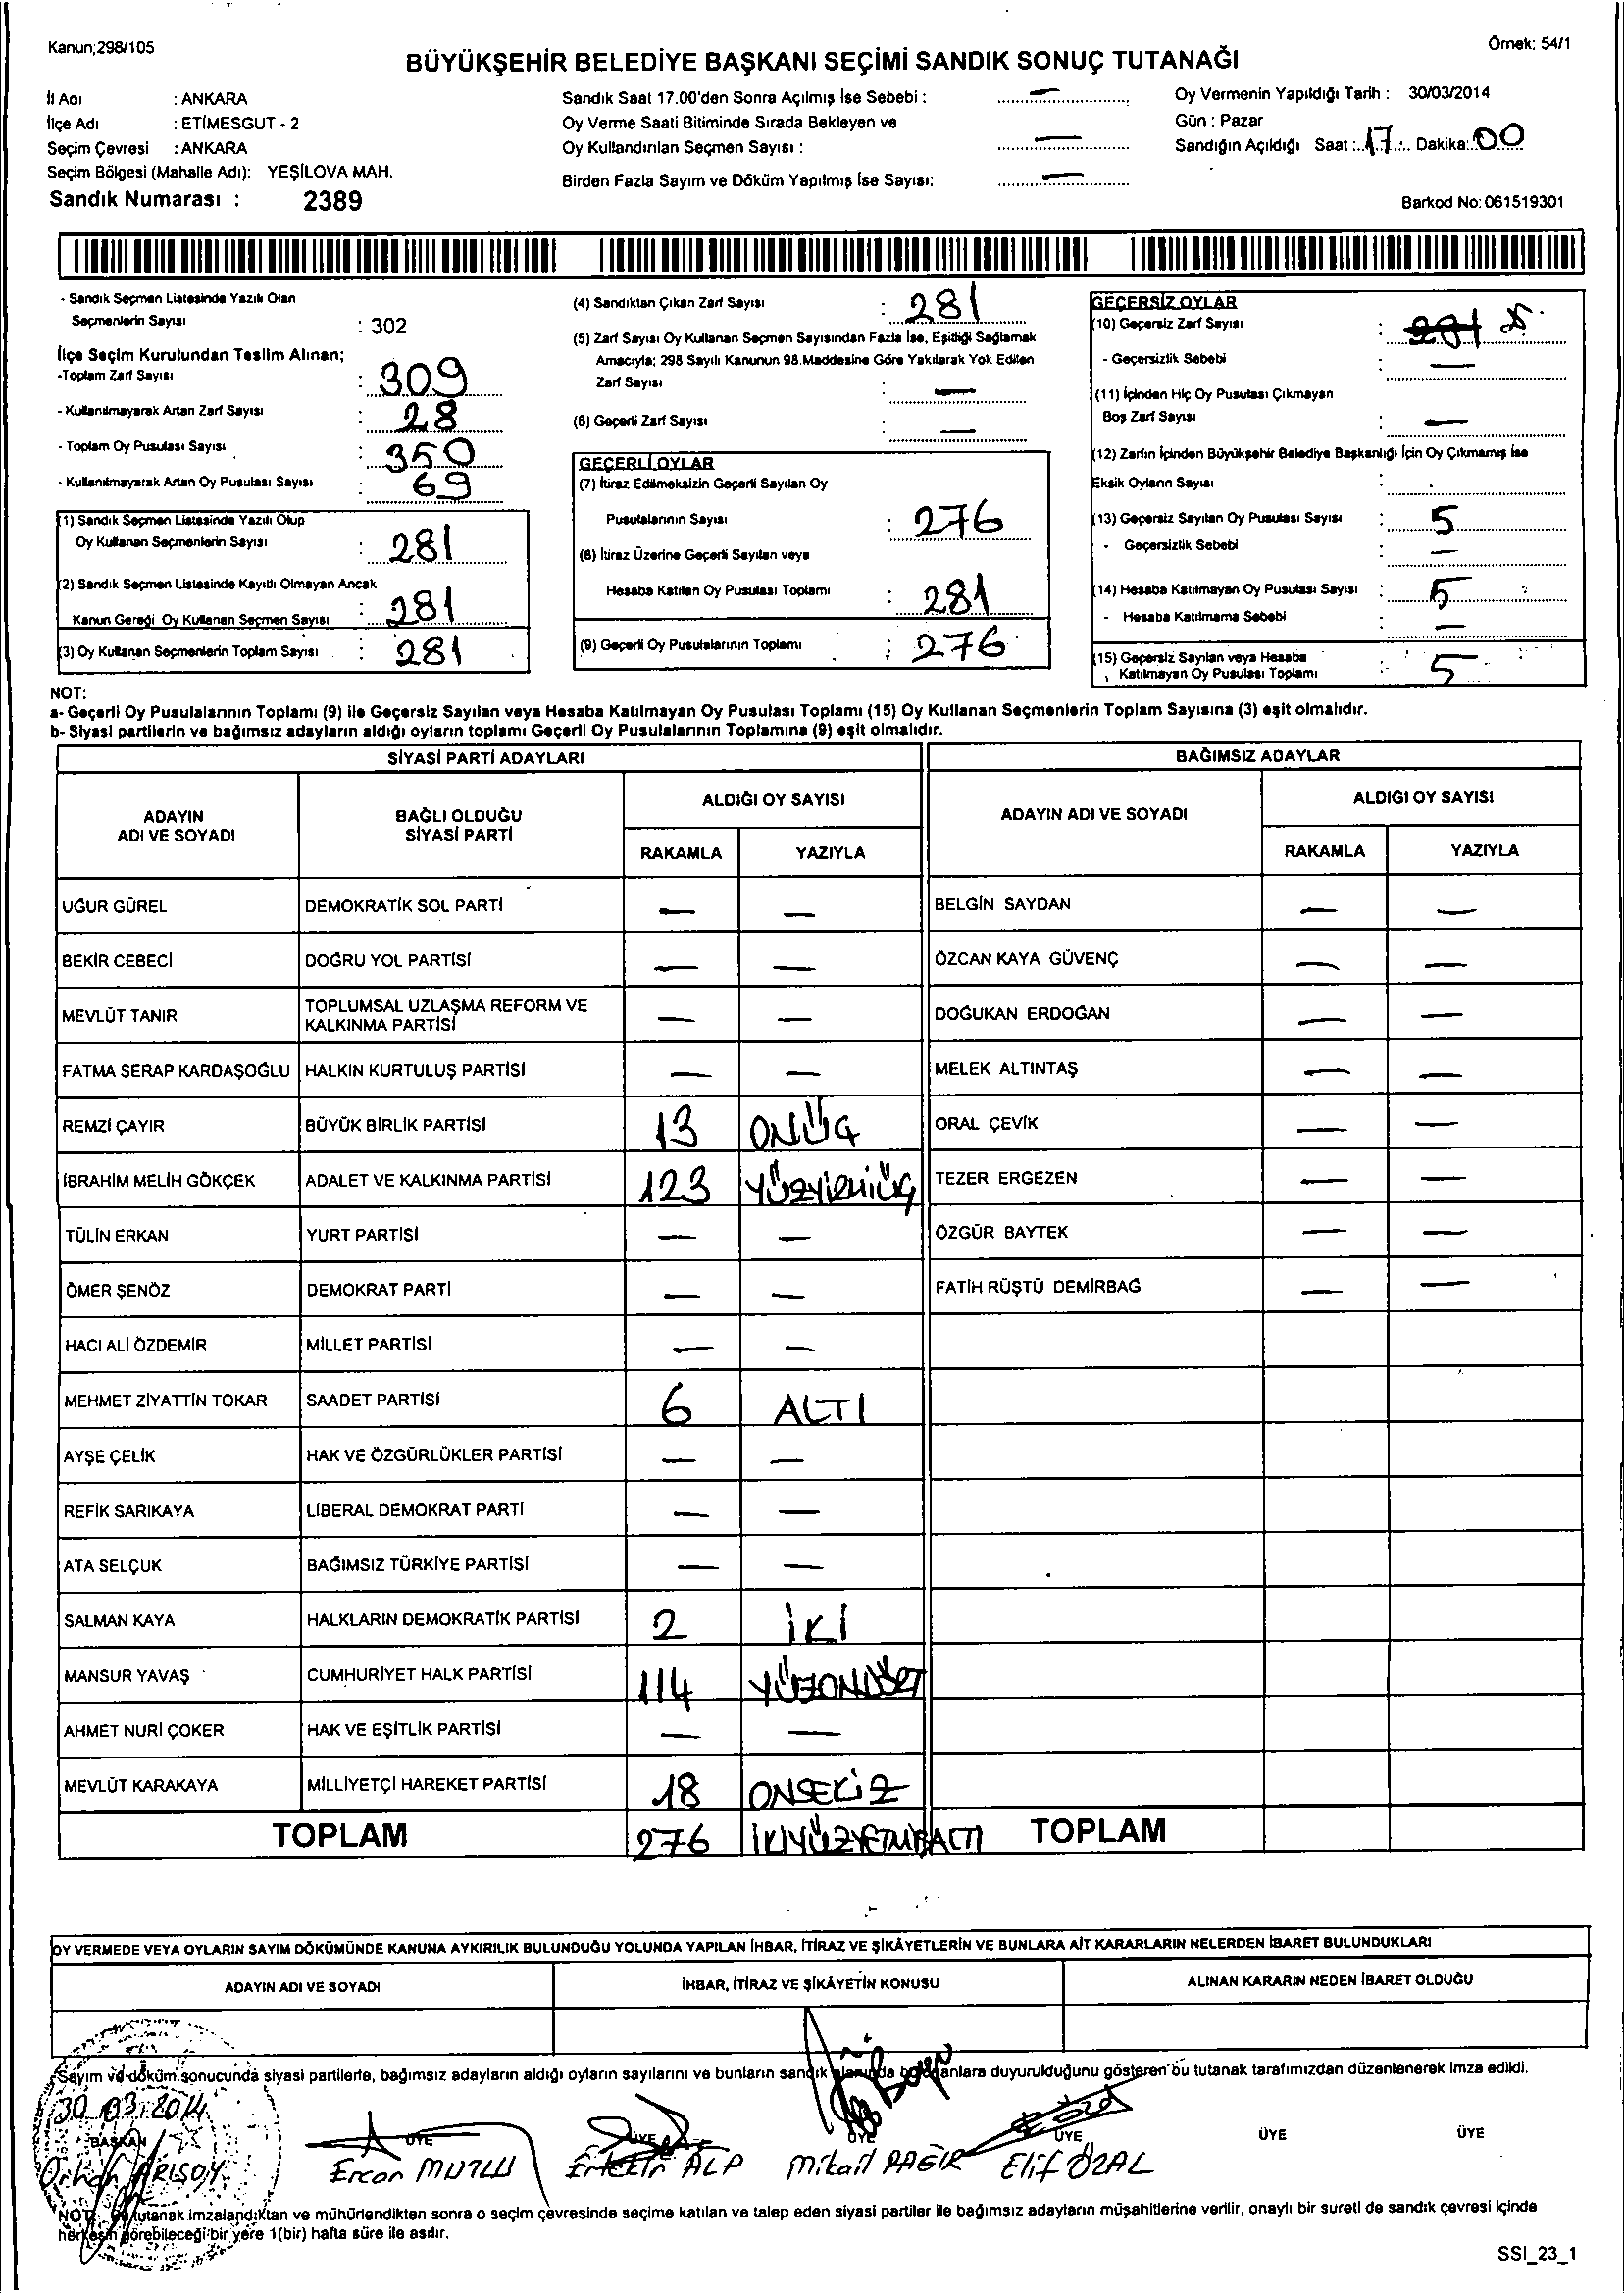 Kanun;298/105
Örnek: 54/1
BÜYÜKŞEHİR BELEDİYE BAŞKANI SEÇİMİ SANDIK SONUÇ TUTANAĞI
İl Adı : ANKARA
İlçe Adı : ETİMESGUT - 2
Seçim Çevresi : ANKARA
Seçim Bölgesi (Mahalle Adı): YEŞİLOVA MAH.
Sandık Numarası : 2389
Sandık Saat 17.00'den Sonra Açılmış İse Sebebi : —
Oy Verme Saati Bitiminde Sırada Bekleyen ve
Oy Kullandırılan Seçmen Sayısı : —
Birden Fazla Sayım ve Döküm Yapılmış İse Sayısı: —
Oy Vermenin Yapıldığı Tarih : 30/03/2014
Gün : Pazar
Sandığın Açıldığı Saat : 17 Dakika: 00
Barkod No: 061519301
- Sandık Seçmen Listesinde Yazılı Olan
Seçmenlerin Sayısı : 302
İlçe Seçim Kurulundan Teslim Alınan;
-Toplam Zarf Sayısı : 309
- Kullanılmayarak Artan Zarf Sayısı : 28
- Toplam Oy Pusulası Sayısı : 350
- Kullanılmayarak Artan Oy Pusulası Sayısı : 69
(1) Sandık Seçmen Listesinde Yazılı Olup
Oy Kullanan Seçmenlerin Sayısı : 281
(2) Sandık Seçmen Listesinde Kayıtlı Olmayan Ancak
Kanun Gereği Oy Kullanan Seçmen Sayısı : 281
(3) Oy Kullanan Seçmenlerin Toplam Sayısı : 281
(4) Sandıktan Çıkan Zarf Sayısı : 281
(5) Zarf Sayısı Oy Kullanan Seçmen Sayısından Fazla İse, Eşitliği Sağlamak
Amacıyla; 298 Sayılı Kanunun 98.Maddesine Göre Yakılarak Yok Edilen
Zarf Sayısı : —
(6) Geçerli Zarf Sayısı : —
GEÇERLİ OYLAR
(7) İtiraz Edilmeksizin Geçerli Sayılan Oy
Pusulalarının Sayısı : 276
(8) İtiraz Üzerine Geçerli Sayılan veya
Hesaba Katılan Oy Pusulası Toplamı : 281
(9) Geçerli Oy Pusulalarının Toplamı : 276
GEÇERSİZ OYLAR
(10) Geçersiz Zarf Sayısı : 281
- Geçersizlik Sebebi : —
(11) İçinden Hiç Oy Pusulası Çıkmayan
Boş Zarf Sayısı : —
(12) Zarfın İçinden Büyükşehir Belediye Başkanlığı İçin Oy Çıkmamış İse
Eksik Oyların Sayısı :
(13) Geçersiz Sayılan Oy Pusulası Sayısı : 5
- Geçersizlik Sebebi : —
(14) Hesaba Katılmayan Oy Pusulası Sayısı : 5
- Hesaba Katılmama Sebebi : —
(15) Geçersiz Sayılan veya Hesaba
Katılmayan Oy Pusulası Toplamı : 5
NOT:
a- Geçerli Oy Pusulalarının Toplamı (9) ile Geçersiz Sayılan veya Hesaba Katılmayan Oy Pusulası Toplamı (15) Oy Kullanan Seçmenlerin Toplam Sayısına (3) eşit olmalıdır.
b- Siyasi partilerin ve bağımsız adayların aldığı oyların toplamı Geçerli Oy Pusulalarının Toplamına (9) eşit olmalıdır.
SİYASİ PARTİ ADAYLARI BAĞIMSIZ ADAYLAR
ADAYIN ADI VE SOYADI BAĞLI OLDUĞU SİYASİ PARTİ ALDIĞI OY SAYISI ADAYIN ADI VE SOYADI ALDIĞI OY SAYISI
RAKAMLA YAZIYLA RAKAMLA YAZIYLA
UĞUR GÜREL DEMOKRATİK SOL PARTİ — — BELGİN SAYDAN — —
BEKİR CEBECİ DOĞRU YOL PARTİSİ — — ÖZCAN KAYA GÜVENÇ — —
MEVLÜT TANIR TOPLUMSAL UZLAŞMA REFORM VE KALKINMA PARTİSİ — — DOĞUKAN ERDOĞAN — —
FATMA SERAP KARDAŞOĞLU HALKIN KURTULUŞ PARTİSİ — — MELEK ALTINTAŞ — —
REMZİ ÇAYIR BÜYÜK BİRLİK PARTİSİ 13 ONÜÇ ORAL ÇEVİK — —
İBRAHİM MELİH GÖKÇEK ADALET VE KALKINMA PARTİSİ 123 YÜZYİRMİÜÇ TEZER ERGEZEN — —
TÜLİN ERKAN YURT PARTİSİ — — ÖZGÜR BAYTEK — —
ÖMER ŞENÖZ DEMOKRAT PARTİ — — FATİH RÜŞTÜ DEMİRBAĞ — —
HACI ALİ ÖZDEMİR MİLLET PARTİSİ — —
MEHMET ZİYATTİN TOKAR SAADET PARTİSİ 6 ALTI
AYŞE ÇELİK HAK VE ÖZGÜRLÜKLER PARTİSİ — —
REFİK SARIKAYA LİBERAL DEMOKRAT PARTİ — —
ATA SELÇUK BAĞIMSIZ TÜRKİYE PARTİSİ — —
SALMAN KAYA HALKLARIN DEMOKRATİK PARTİSİ 2 İKİ
MANSUR YAVAŞ CUMHURİYET HALK PARTİSİ 114 YÜZONDÖRT
AHMET NURİ ÇOKER HAK VE EŞİTLİK PARTİSİ — —
MEVLÜT KARAKAYA MİLLİYETÇİ HAREKET PARTİSİ 18 ONSEKİZ
TOPLAM 276 İKİYÜZYETMİŞALTI TOPLAM
OY VERMEDE VEYA OYLARIN SAYIM DÖKÜMÜNDE KANUNA AYKIRILIK BULUNDUĞU YOLUNDA YAPILAN İHBAR, İTİRAZ VE ŞİKÂYETLERİN VE BUNLARA AİT KARARLARIN NELERDEN İBARET BULUNDUKLARI
ADAYIN ADI VE SOYADI İHBAR, İTİRAZ VE ŞİKÂYETİN KONUSU ALINAN KARARIN NEDEN İBARET OLDUĞU
Sayım ve döküm sonucunda siyasi partilerle, bağımsız adayların aldığı oyların sayılarını ve bunların sandık alanında bulunanlara duyurulduğunu gösteren bu tutanak tarafımızdan düzenlenerek imza edildi.
30.03.2014
BAŞKAN ÜYE ÜYE ÜYE ÜYE ÜYE ÜYE
Orhan ARISOY Ercan MUTLU Ertekin ALP Mikail Elif ÖZAL
NOT: Bu tutanak imzalandıktan ve mühürlendikten sonra o seçim çevresinde seçime katılan ve talep eden siyasi partiler ile bağımsız adayların müşahitlerine verilir, onaylı bir sureti de sandık çevresi içinde
herkesin görebileceği bir yere 1(bir) hafta süre ile asılır.
SSI_23_1